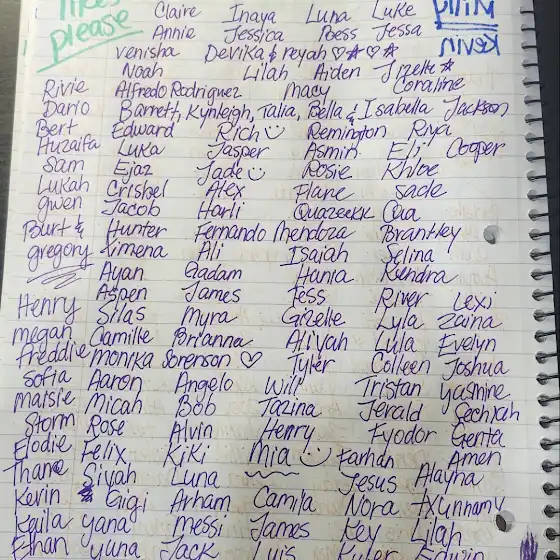 likes please
Claire Inaya Luna Luke
Annie Jessica Poess Jessa
Kevin
venisha Devika & reyah ♡☆♡☆
Noah Lilah Aiden Jizelle ☆
Rivie Alfredo Rodriguez Macy Coraline
Dario Barrett, Kynleigh, Talia, Bella & Isabella Jackson
Bert Edward Rich Remington Riya
Huzaifa Luka Jasper Asmin Eli Cooper
Sam Ejaz Jade Rosie Khloe
Lukah Crisbel Alex Flare Sade
gwen Jacob Harli Quazeekk
Burt & Hunter Fernando Mendoza Brantley
gregory Ximena Ali Isaiah Selina
Ayan Qadam Hania Kendra
Henry Aspen James Jess River Lexi
megan Silas Myra Gizelle Lyla Zaina
freddie Camille Brianna Aliyah Lula Evelyn
monika Sorenson ♡ Tyler Colleen Joshua
Sofia Aaron Angelo Will Tristan yasmine
maisie Micah Bob Tazina Jerald
Storm Rose Alvin Henry Fyodor Genta
Elodie Felix KiKi Mia Farhan Amen
Thane Siyah Luna Jesus Alayna
Kevin Gigi Arham Camila Nora
Kaila yana messi James Key Lilah
Ethan yuna Jack Luis